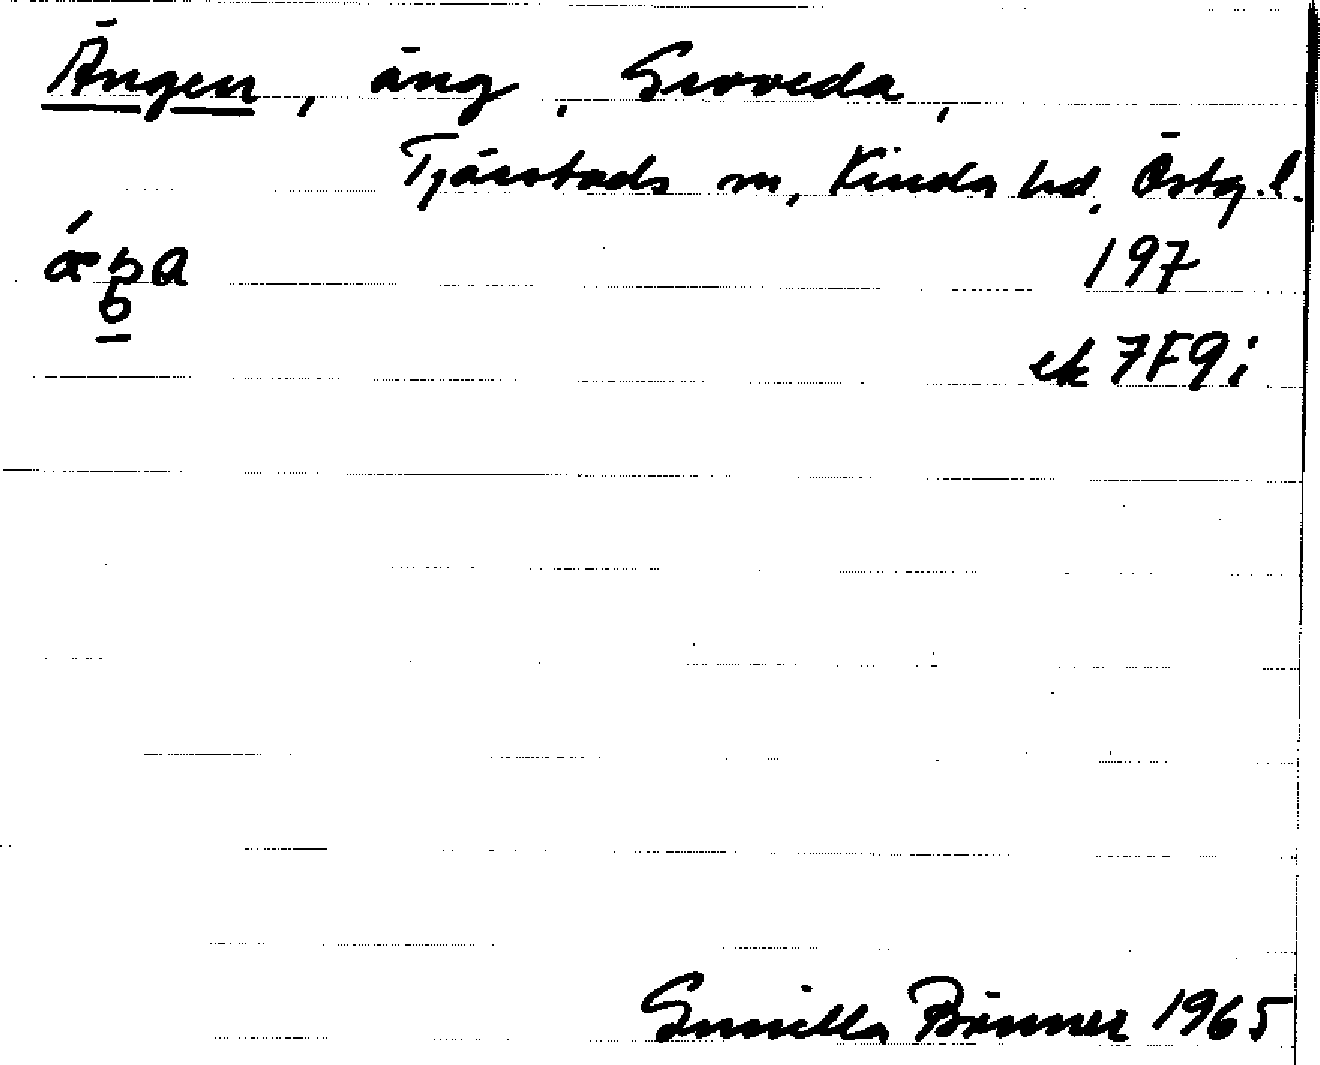 Ängen, äng, Groveda,
Tjärstads sn, Kinda hd, Östg.l.
197
ek 7F9i
Gunilla Bönner 1965